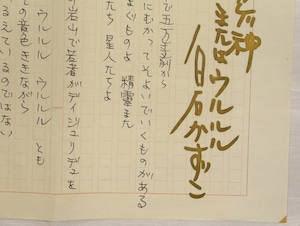 神
またはウルルル
白石かずこ
で五万年前から
にむかってそよいでいくものがある
ぐものよ 精霊また
たち 星人たちよ
岩山で若者がディジュリデュを
ウルルル ウルルル とも
の音色ききながら
るえているのではない